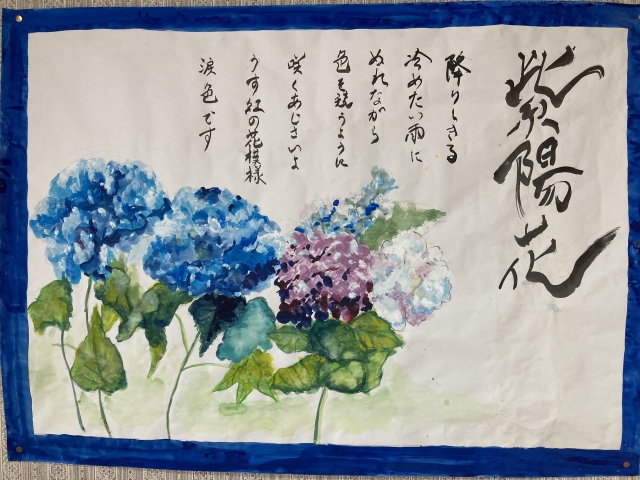 紫陽花
降りしきる
冷めたい雨に
ぬれながら
色を競うように
咲くあじさいよ
うす紅の花模様
涙色です